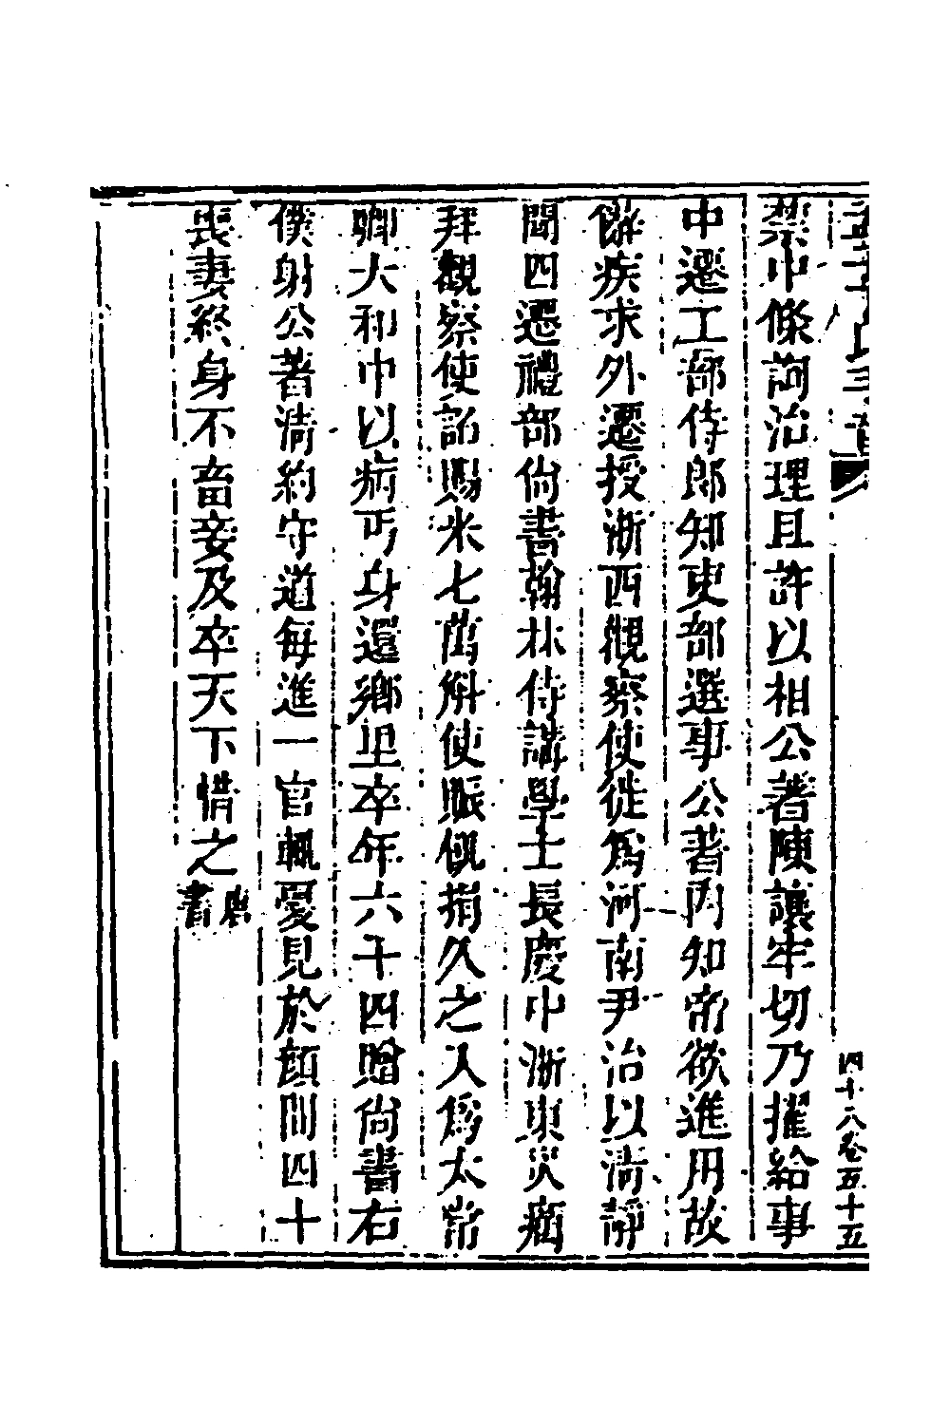 四十八卷五十五
禁中條詢治理且許以相公著陳讓牢切乃擢給事
中遷工部侍郎知吏部選事公著內知帝欲進用故
辭疾求外遷授浙西觀察使徙爲河南尹治以清靜
聞四遷禮部尚書翰林侍講學士長慶中浙東災癘
拜觀察使詔賜米七萬斛使賑饑捐久之入爲太常
卿大和中以病丐身還鄉里卒年六十四贈尚書右
僕射公著清約守道每進一官輒憂見於顏間四十
喪妻終身不畜妾及卒天下惜之唐書